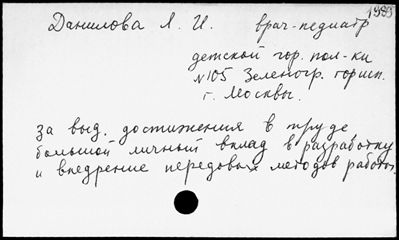 1993
Данилова Л. И. врач-педиатр
детской гор. пол-ки
№105 Зеленогр. горисп.
г. Москвы.
за выд. достижения в труде
большой личный вклад в разработку
и внедрение передовых методов работы.